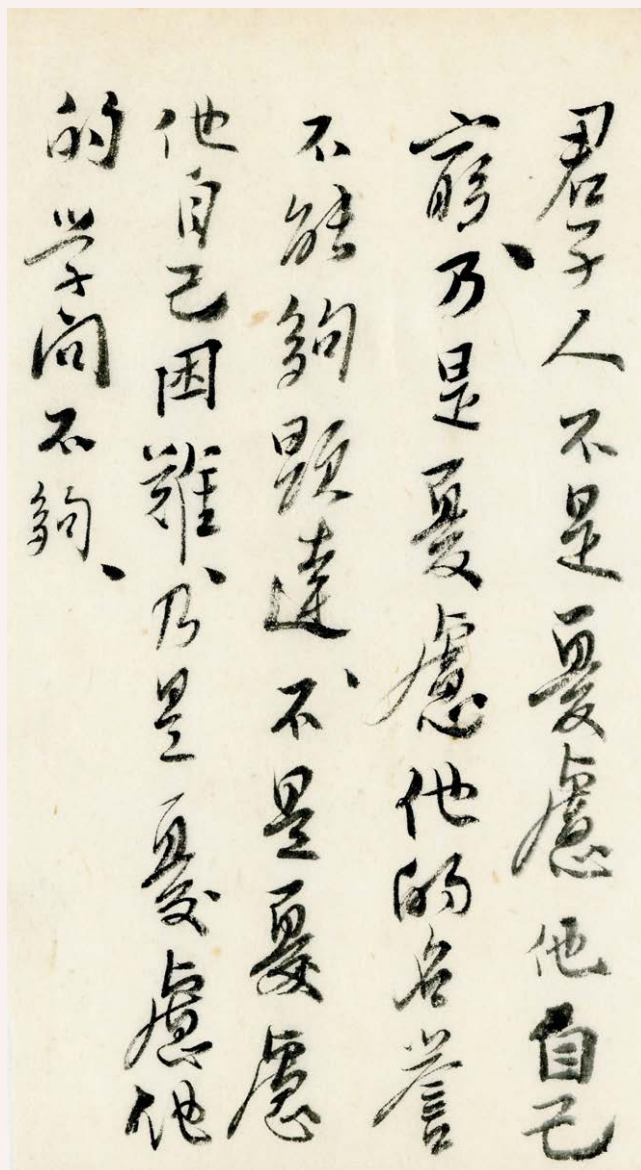 君子人不是憂慮他自己
窮、乃是憂慮他的名誉
不能夠顕達、不是憂慮
他自己困難、乃是憂慮他
的学問不夠、